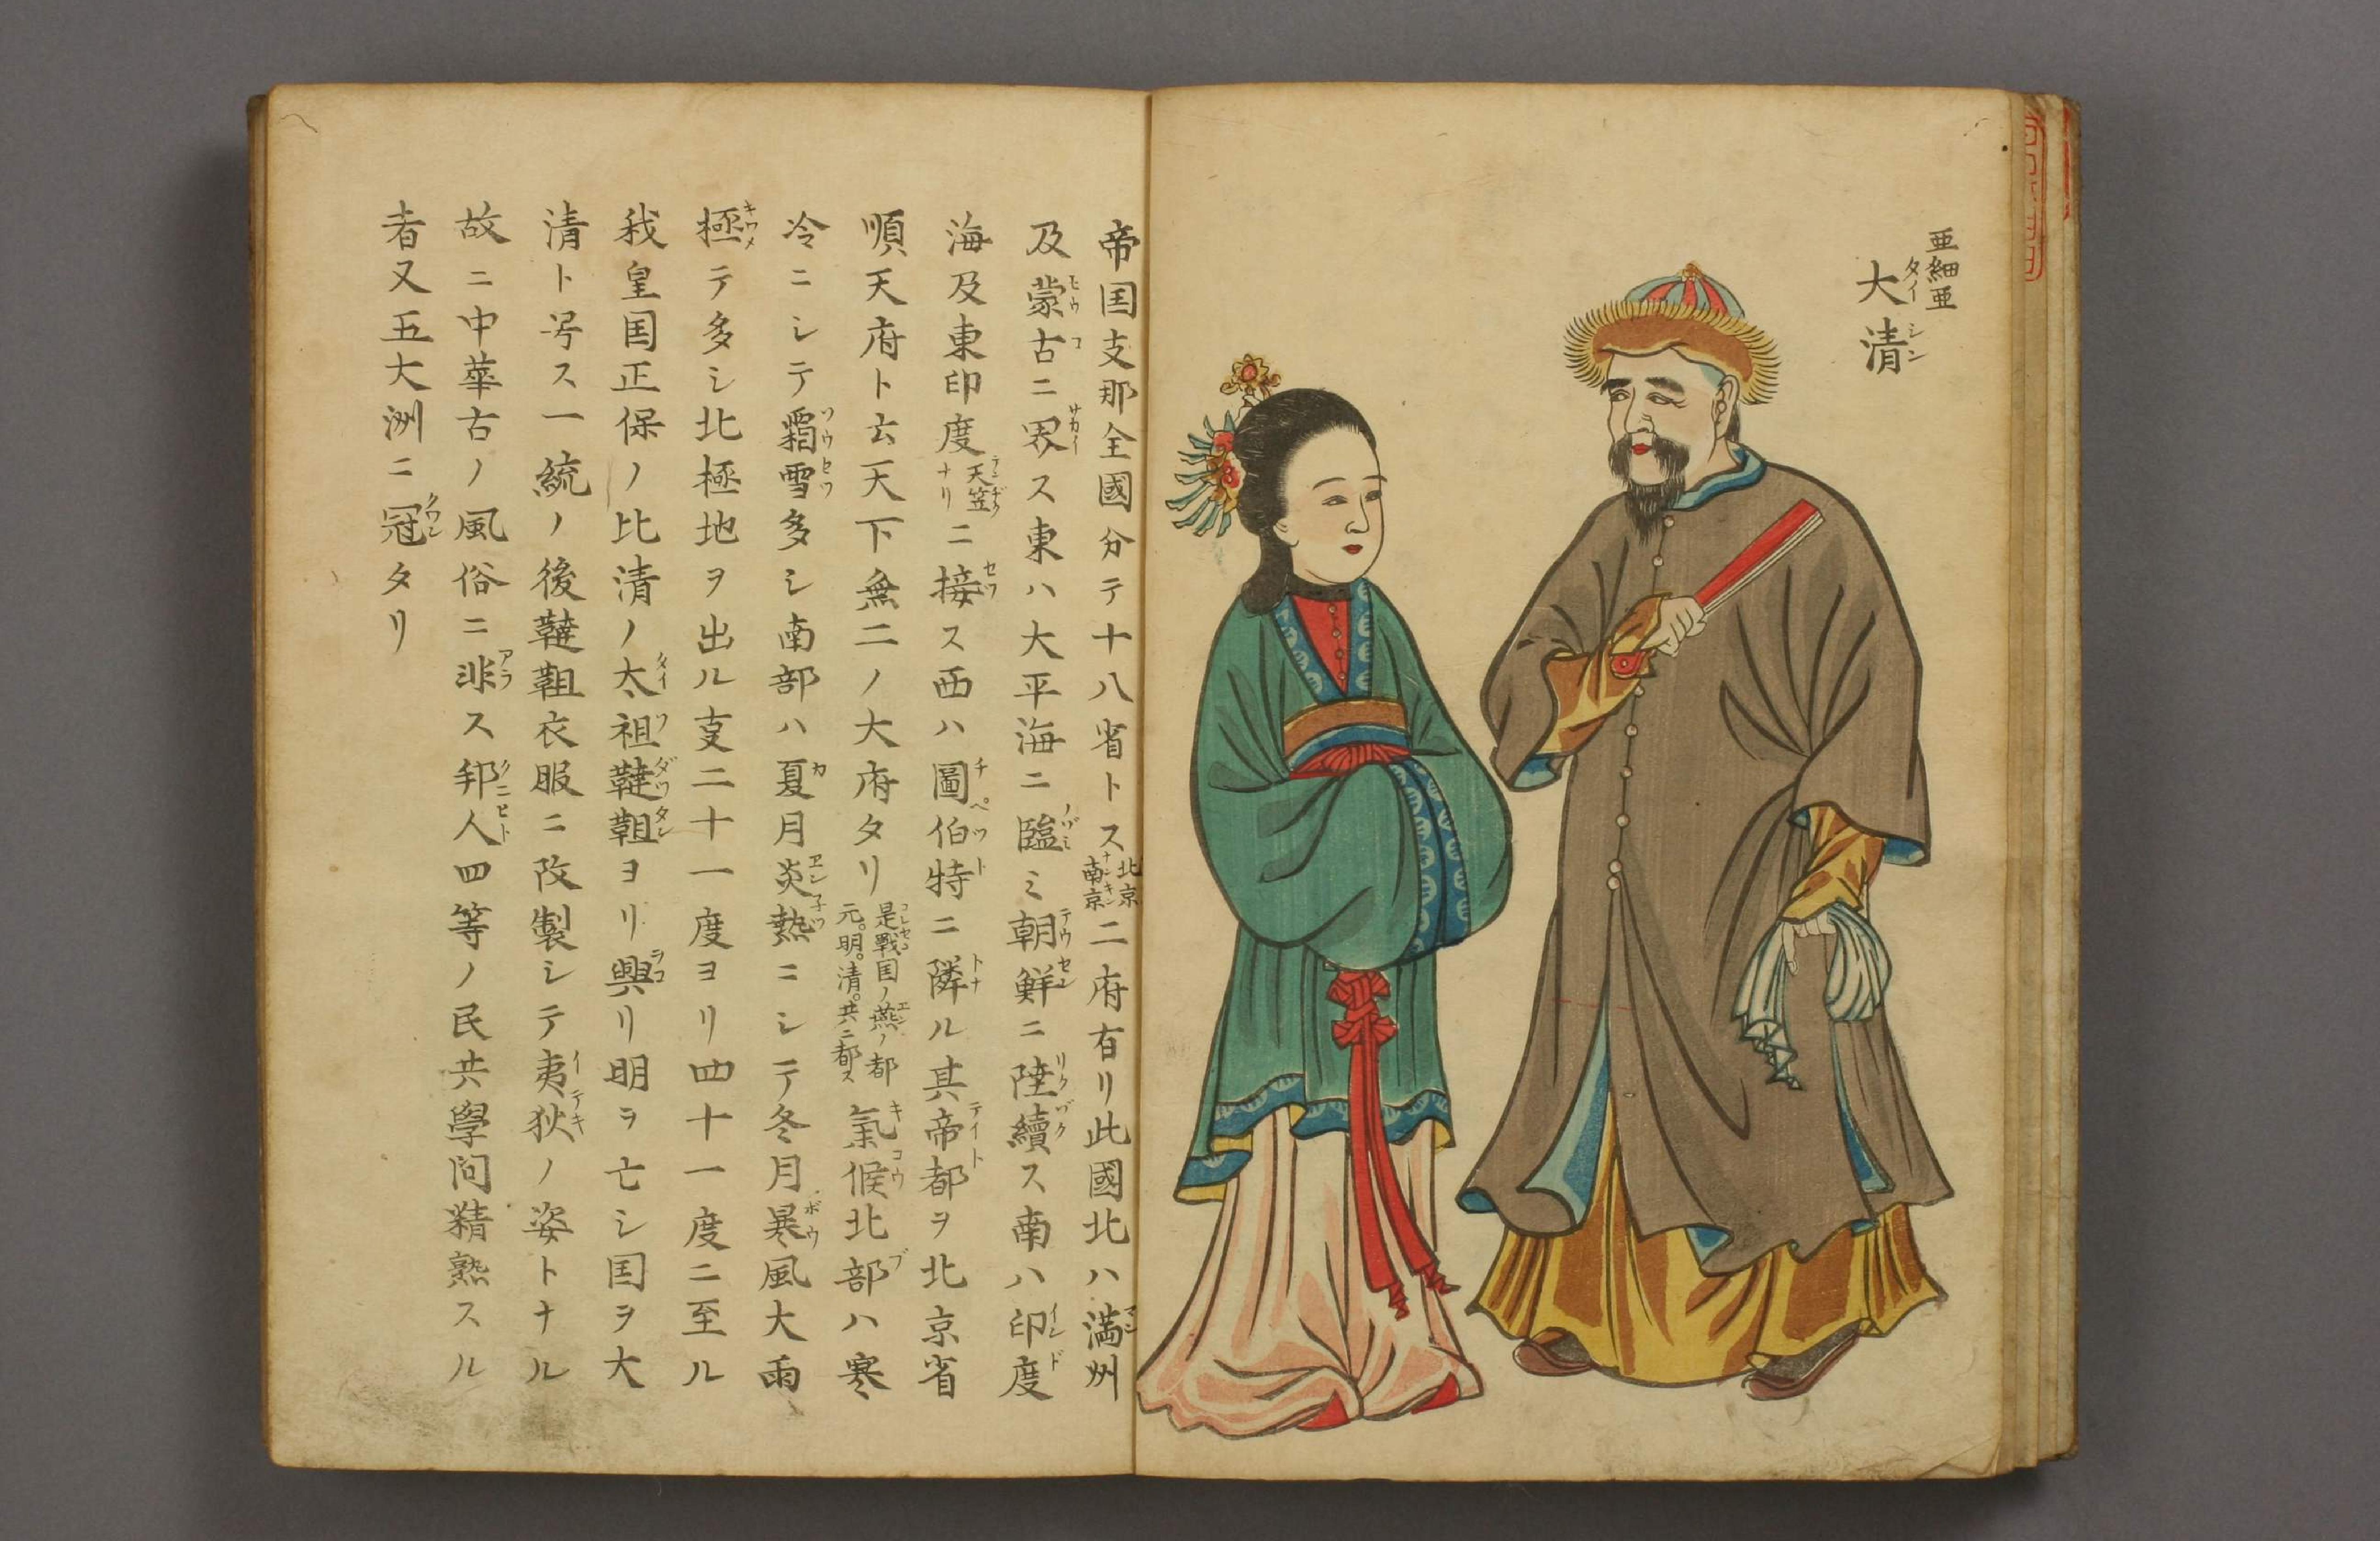 亜細亜
大清
帝国支那全國分テ十八省トス北京南京二府有リ此國北ハ満州
及蒙古ニ界ス東ハ大平海ニ臨ミ朝鮮ニ陸續ス南ハ印度
海及東印度天笠ナリニ接ス西ハ圖伯特ニ隣ル其帝都ヲ北京省
順天府ト云天下無二ノ大府タリ是戰国ノ燕ノ都元。明。清。共ニ都ス氣候北部ハ寒
冷ニシテ霜雪多シ南部ハ夏月炎熱ニシテ冬月暴風大雨
極テ多シ北極地ヲ出ル㕝二十一度ヨリ四十一度ニ至ル
我皇国正保ノ比清ノ太祖韃靼ヨリ興リ明ヲ亡シ国ヲ大
清ト号ス一統ノ後韃靼衣服ニ改製シテ夷狄ノ姿トナル
故ニ中華古ノ風俗ニ非ス邦人四等ノ民共學問精熟スル
者又五大洲ニ冠タリ